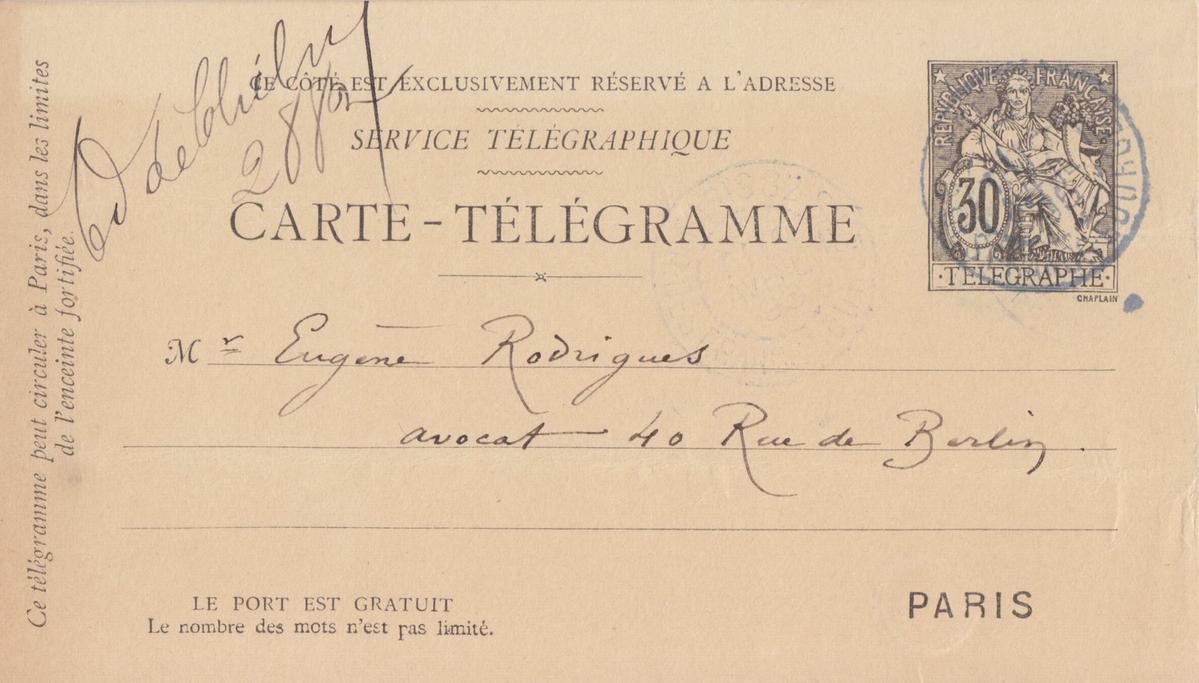 CE CÔTÉ EST EXCLUSIVEMENT RÉSERVÉ A L'ADRESSE
SERVICE TÉLÉGRAPHIQUE
CARTE-TÉLÉGRAMME
REPUBLIQUE FRANCAISE
30
·TELEGRAPHE·
CHAPLAIN
Mr Eugène Rodrigues
avocat 40 Rue de Berlin.
LE PORT EST GRATUIT
Le nombre des mots n'est pas limité.
PARIS
Ce télégramme peut circuler à Paris, dans les limites
de l'enceinte fortifiée.